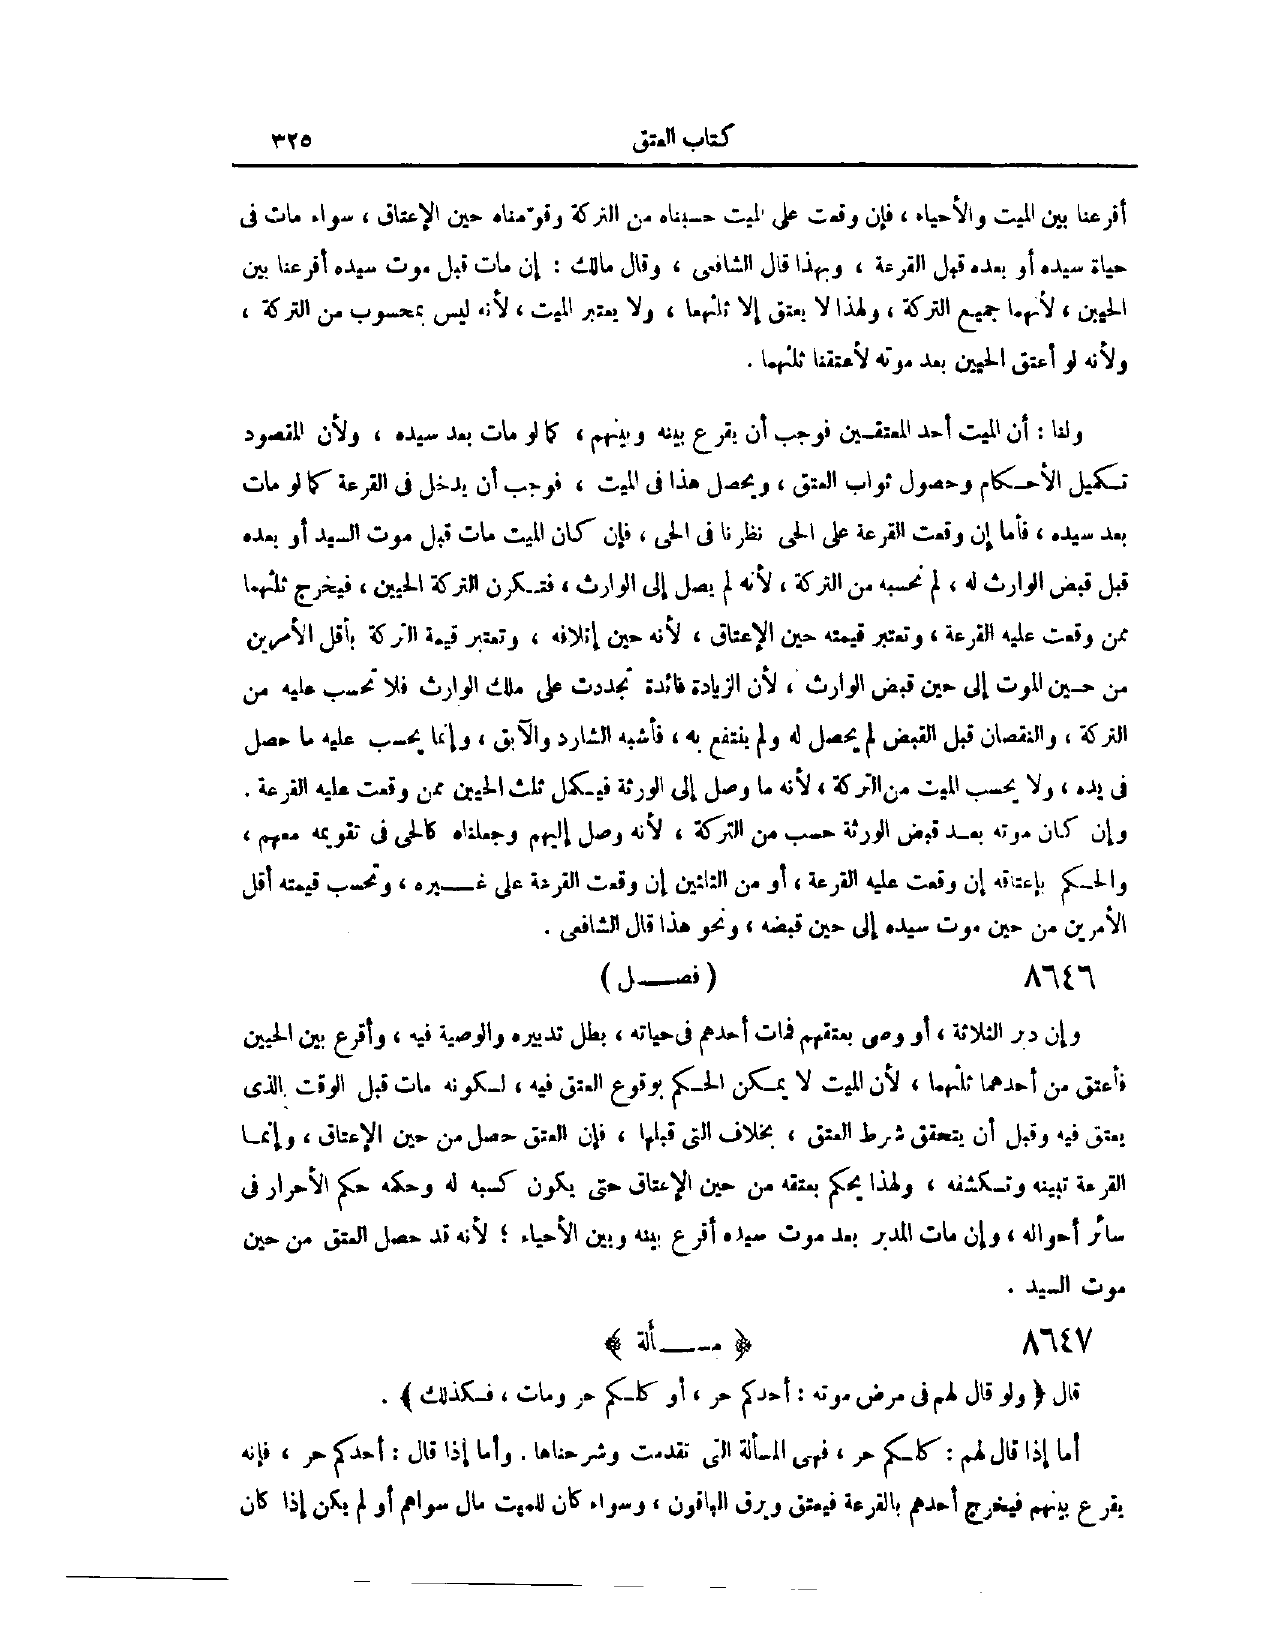 كتاب العتق
٣٢٥
أقرعنا بين الميت والأحياء ، فإن وقعت على الميت حسبناه من التركة وقومناه حين الإعتاق ، سواء مات فى
حياة سيده أو بعده قبل القرعة ، وبهذا قال الشافعى ، وقال مالك : إن مات قبل موت سيده أقرعنا بين
الحيين ، لأنهما جميع التركة ، ولهذا لا يعتق إلا ثلثهما ، ولا يعتبر الميت ، لأنه ليس بمحسوب من التركة ،
ولأنه لو أعتق الحيين بعد موته لأعتقنا ثلثهما .
ولنا : أن الميت أحد المعتقين فوجب أن يقرع بينه وبينهم ، كما لو مات بعد سيده ، ولأن المقصود
تكميل الأحكام وحصول ثواب العتق ، ويحصل هذا فى الميت ، فوجب أن يدخل فى القرعة كما لو مات
بعد سيده ، فأما إن وقعت القرعة على الحى نظرنا فى الحى ، فإن كان الميت مات قبل موت السيد أو بعده
قبل قبض الوارث له ، لم نحسبه من التركة ، لأنه لم يصل إلى الوارث ، فتكون التركة الحيين ، فيخرج ثلثهما
ممن وقعت عليه القرعة ، وتعتبر قيمته حين الإعتاق ، لأنه حين إتلافه ، وتعتبر قيمة التركة بأقل الأمرين
من حين الموت إلى حين قبض الوارث ، لأن الزيادة فائدة تجددت على ملك الوارث فلا تحسب عليه من
التركة ، والنقصان قبل القبض لم يحصل له ولم ينتفع به ، فأشبه الشارد والآبق ، وإنما يحسب عليه ما حصل
فى يده ، ولا يحسب الميت من التركة ، لأنه ما وصل إلى الورثة فيكمل ثلث الحيين ممن وقعت عليه القرعة .
وإن كان موته بعد قبض الورثة حسب من التركة ، لأنه وصل إليهم وجعلناه كالحى فى تقويمه معهم ،
والحكم بإعتاقه إن وقعت عليه القرعة ، أو من الثلثين إن وقعت القرعة على غيره ، وتحسب قيمته أقل
الأمرين من حين موت سيده إلى حين قبضه ، ونحو هذا قال الشافعى .
٨٦٤٦ ( فصل )
وإن دبر الثلاثة ، أو وصى بعتقهم فمات أحدهم فى حياته ، بطل تدبيره والوصية فيه ، وأقرع بين الحيين
فأعتق من أحدهما ثلثهما ، لأن الميت لا يمكن الحكم بوقوع العتق فيه ، لكونه مات قبل الوقت الذى
يعتق فيه وقبل أن يتحقق شرط العتق ، بخلاف التى قبلها ، فإن العتق حصل من حين الإعتاق ، وإنما
القرعة تبينه وتكشفه ، ولهذا يحكم بعتقه من حين الإعتاق حتى يكون كسبه له وحكمه حكم الأحرار فى
سائر أحواله ، وإن مات المدبر بعد موت سيده أقرع بينه وبين الأحياء ؛ لأنه قد حصل العتق من حين
موت السيد .
٨٦٤٧ ﴿ مسألة ﴾
قال ﴿ ولو قال لهم فى مرض موته : أحدكم حر ، أو كلكم حر ومات ، فكذلك ﴾ .
أما إذا قال لهم : كلكم حر ، فهى المسألة التى تقدمت وشرحناها . وأما إذا قال : أحدكم حر ، فإنه
يقرع بينهم فيخرج أحدهم بالقرعة فيعتق ويرق الباقون ، وسواء كان للميت مال سواهم أو لم يكن إذا كان